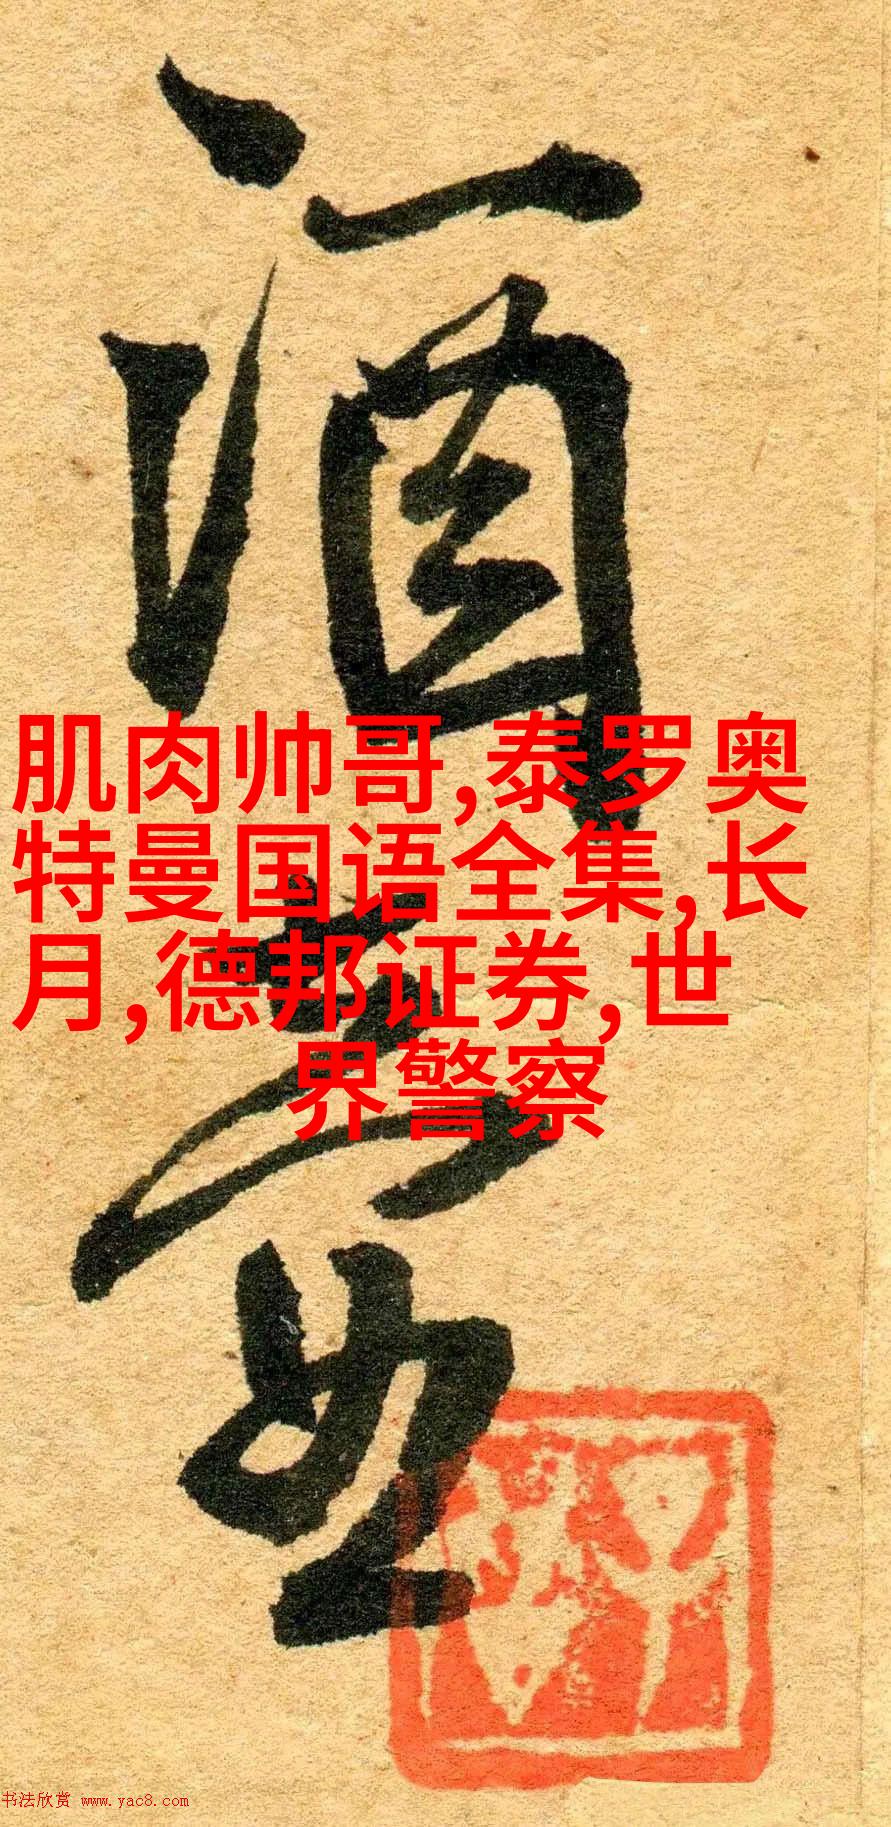 酒
肌肉帅哥,泰罗奥
特曼国语全集,长
月,德邦证券,世
界警察
书法欣赏 www.yac8.com